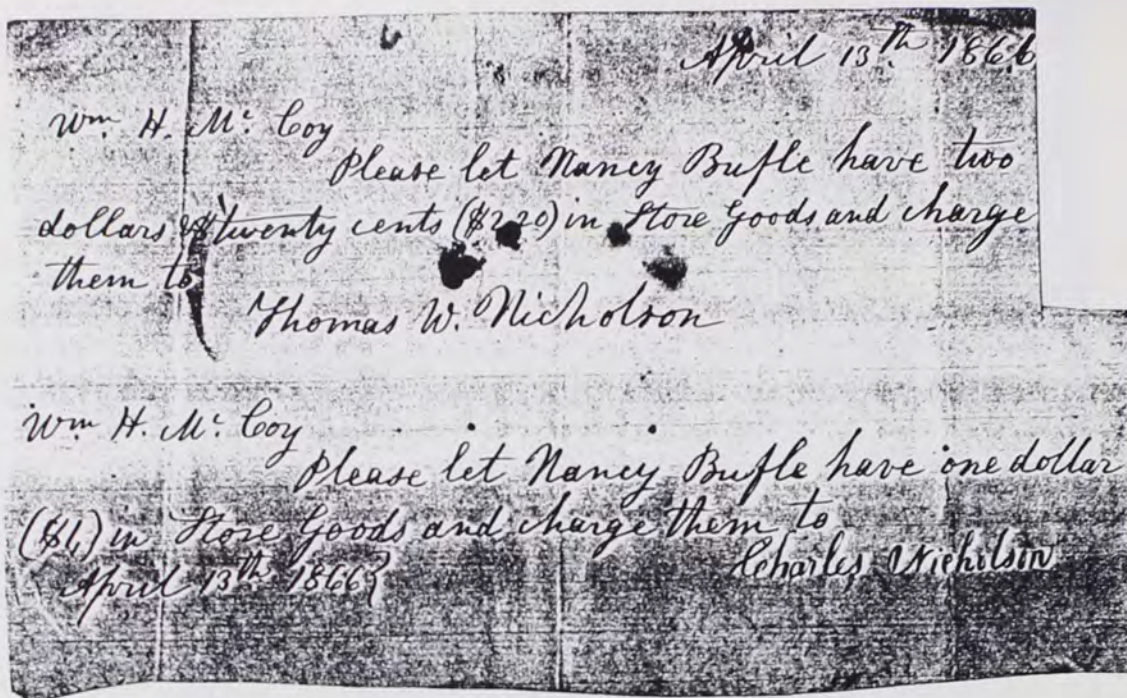 April 13th 1866
Wm H. Mc Coy
Please let Nancy Bufle have two
dollars & twenty cents ($2.20) in Store Goods and charge
them to
Thomas W. Nicholson
Wm H. Mc Coy
Please let Nancy Bufle have one dollar
($1,) in Store Goods and charge them to
Charles Nicholson
April 13th 1866}